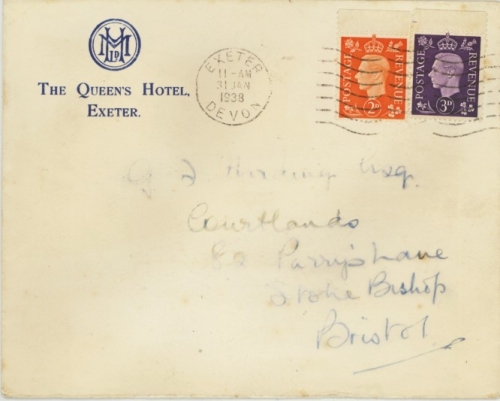 THE QUEEN'S HOTEL,
EXETER.
EXETER
11-AM
31 JAN
1938
DEVON
POSTAGE REVENUE
2D
POSTAGE REVENUE
3D
Esq.
Courtlands
80 Parry's Lane
Stoke Bishop
Bristol